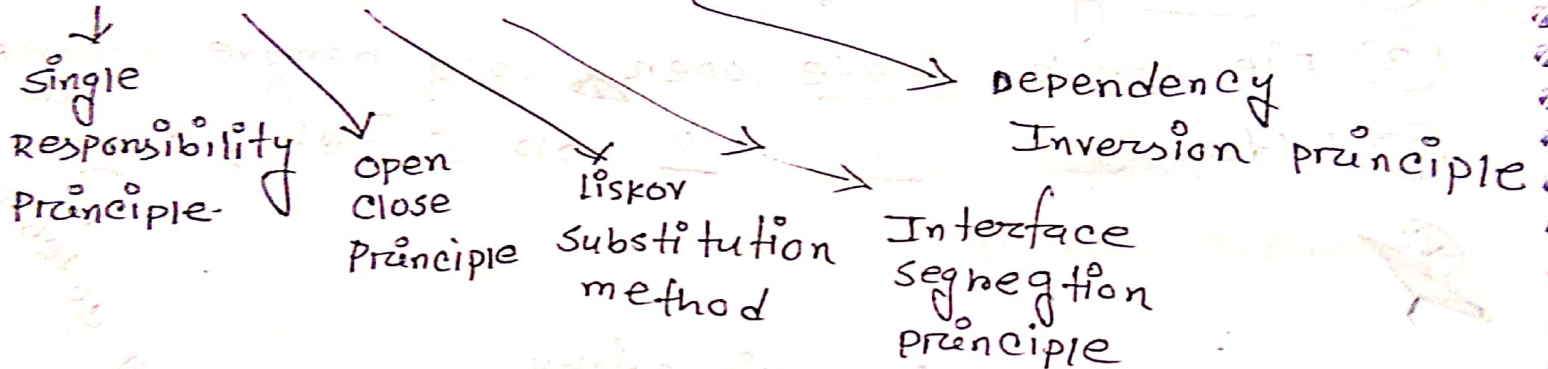 Single
Responsibility
Principle
open
close
Principle
Liskov
Substitution
method
Interface
segregtion
principle
Dependency
Inversion principle